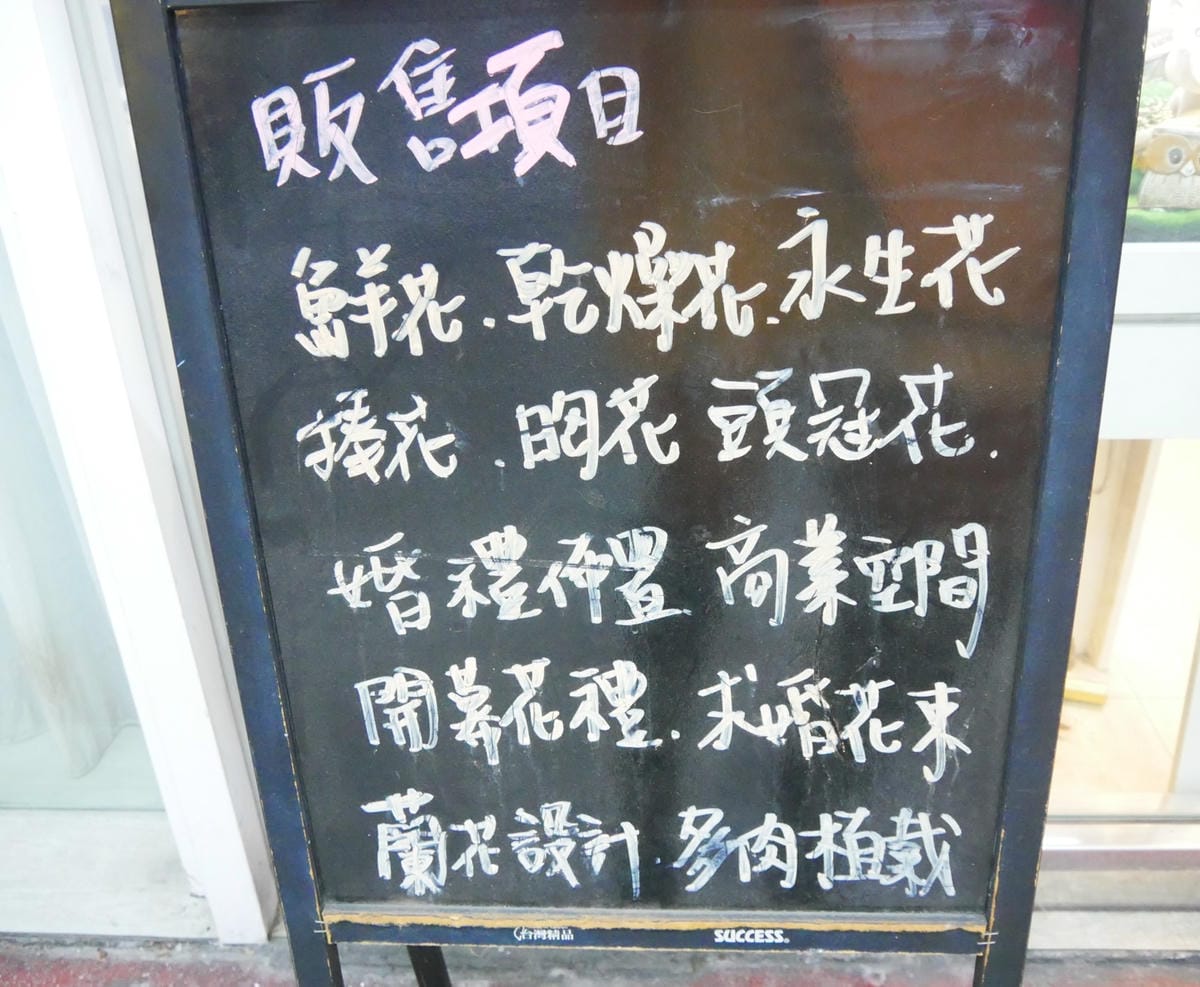 販售項目
鮮花.乾燥花.永生花
捧花.胸花 頭冠花.
婚禮佈置 商業空間
開幕花禮.求婚花束
蘭花設計.多肉植栽
台灣精品 SUCCESS®